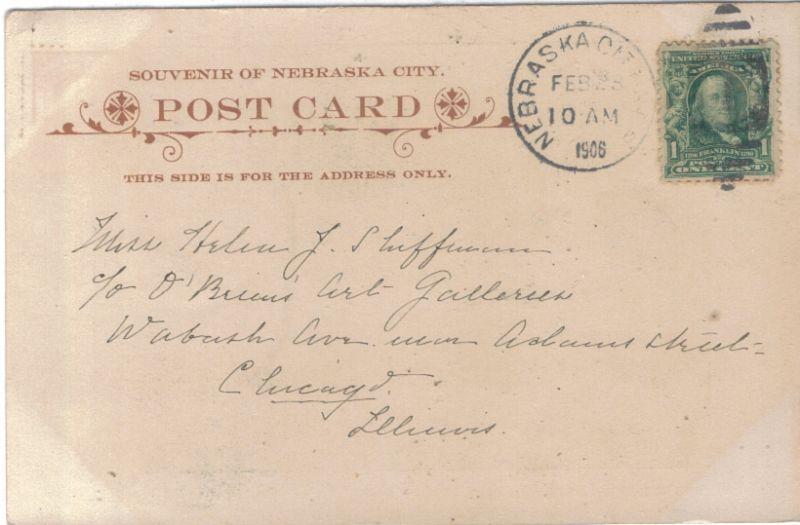 SOUVENIR OF NEBRASKA CITY.
POST CARD
THIS SIDE IS FOR THE ADDRESS ONLY.
NEBRASKA CITY
FEB
10 AM
1906
UNITED STATES
FRANKLIN
1 1
ONE CENT
Miss Helen J. Shiffmann
c/o O'Brien's Art Galleries
Wabash Ave. near Adams Street-
Chicago.
Illinois.